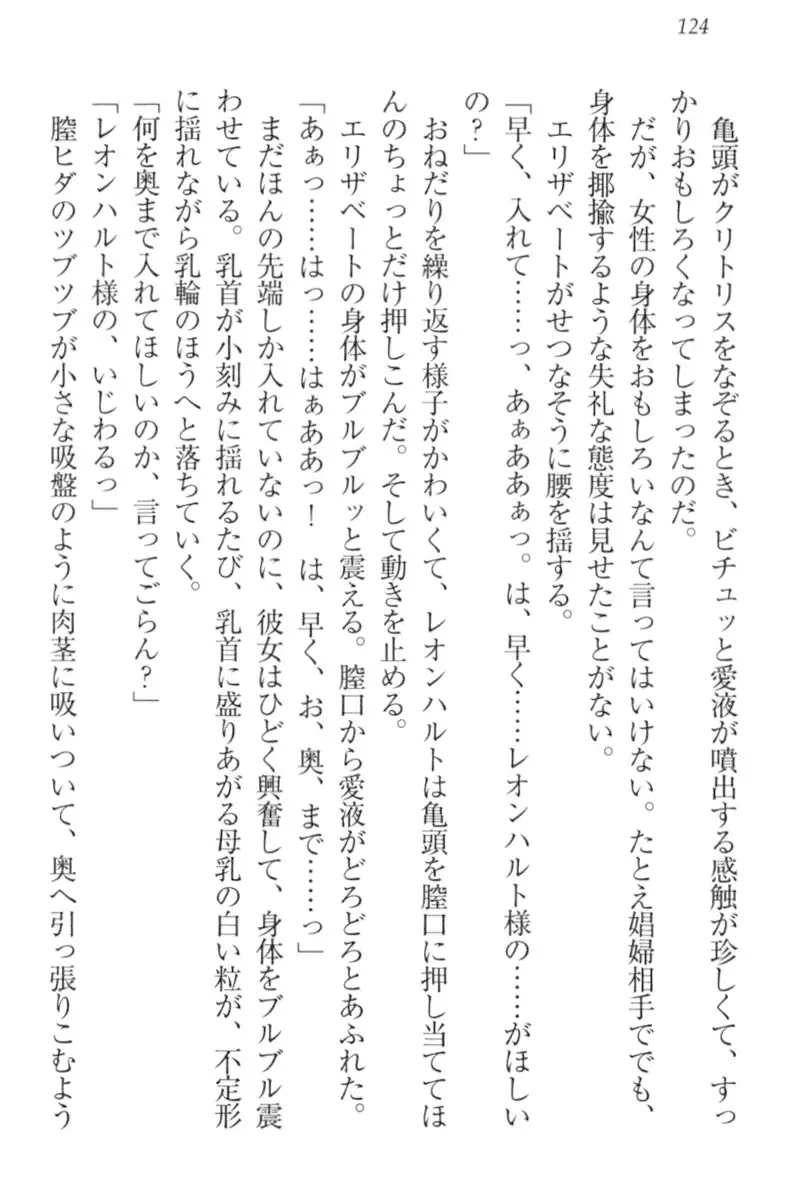 124
亀頭がクリトリスをなぞるとき、ビチュッと愛液が噴出する感触が珍しくて、すっ
かりおもしろくなってしまったのだ。
だが、女性の身体をおもしろいなんて言ってはいけない。たとえ娼婦相手ででも、
身体を揶揄するような失礼な態度は見せたことがない。
エリザベートがせつなそうに腰を揺する。
「早く、入れて……っ、あぁああぁっ。は、早く……レオンハルト様の……がほしい
の？」
おねだりを繰り返す様子がかわいくて、レオンハルトは亀頭を膣口に押し当ててほ
んのちょっとだけ押しこんだ。そして動きを止める。
エリザベートの身体がブルブルッと震える。膣口から愛液がどろどろとあふれた。
「あぁっ……はっ……はぁああっ！　は、早く、お、奥、まで……っ」
まだほんの先端しか入れていないのに、彼女はひどく興奮して、身体をブルブル震
わせている。乳首が小刻みに揺れるたび、乳首に盛りあがる母乳の白い粒が、不定形
に揺れながら乳輪のほうへと落ちていく。
「何を奥まで入れてほしいのか、言ってごらん？」
「レオンハルト様の、いじわるっ」
膣ヒダのツブツブが小さな吸盤のように肉茎に吸いついて、奥へ引っ張りこむよう